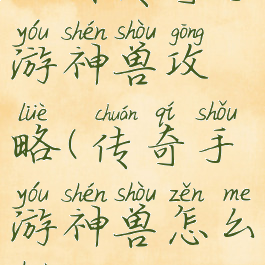 yóu shén shòu gōng
游神兽攻
lüè chuán qí shǒu
略(传奇手
yóu shén shòu zěn me
游神兽怎么